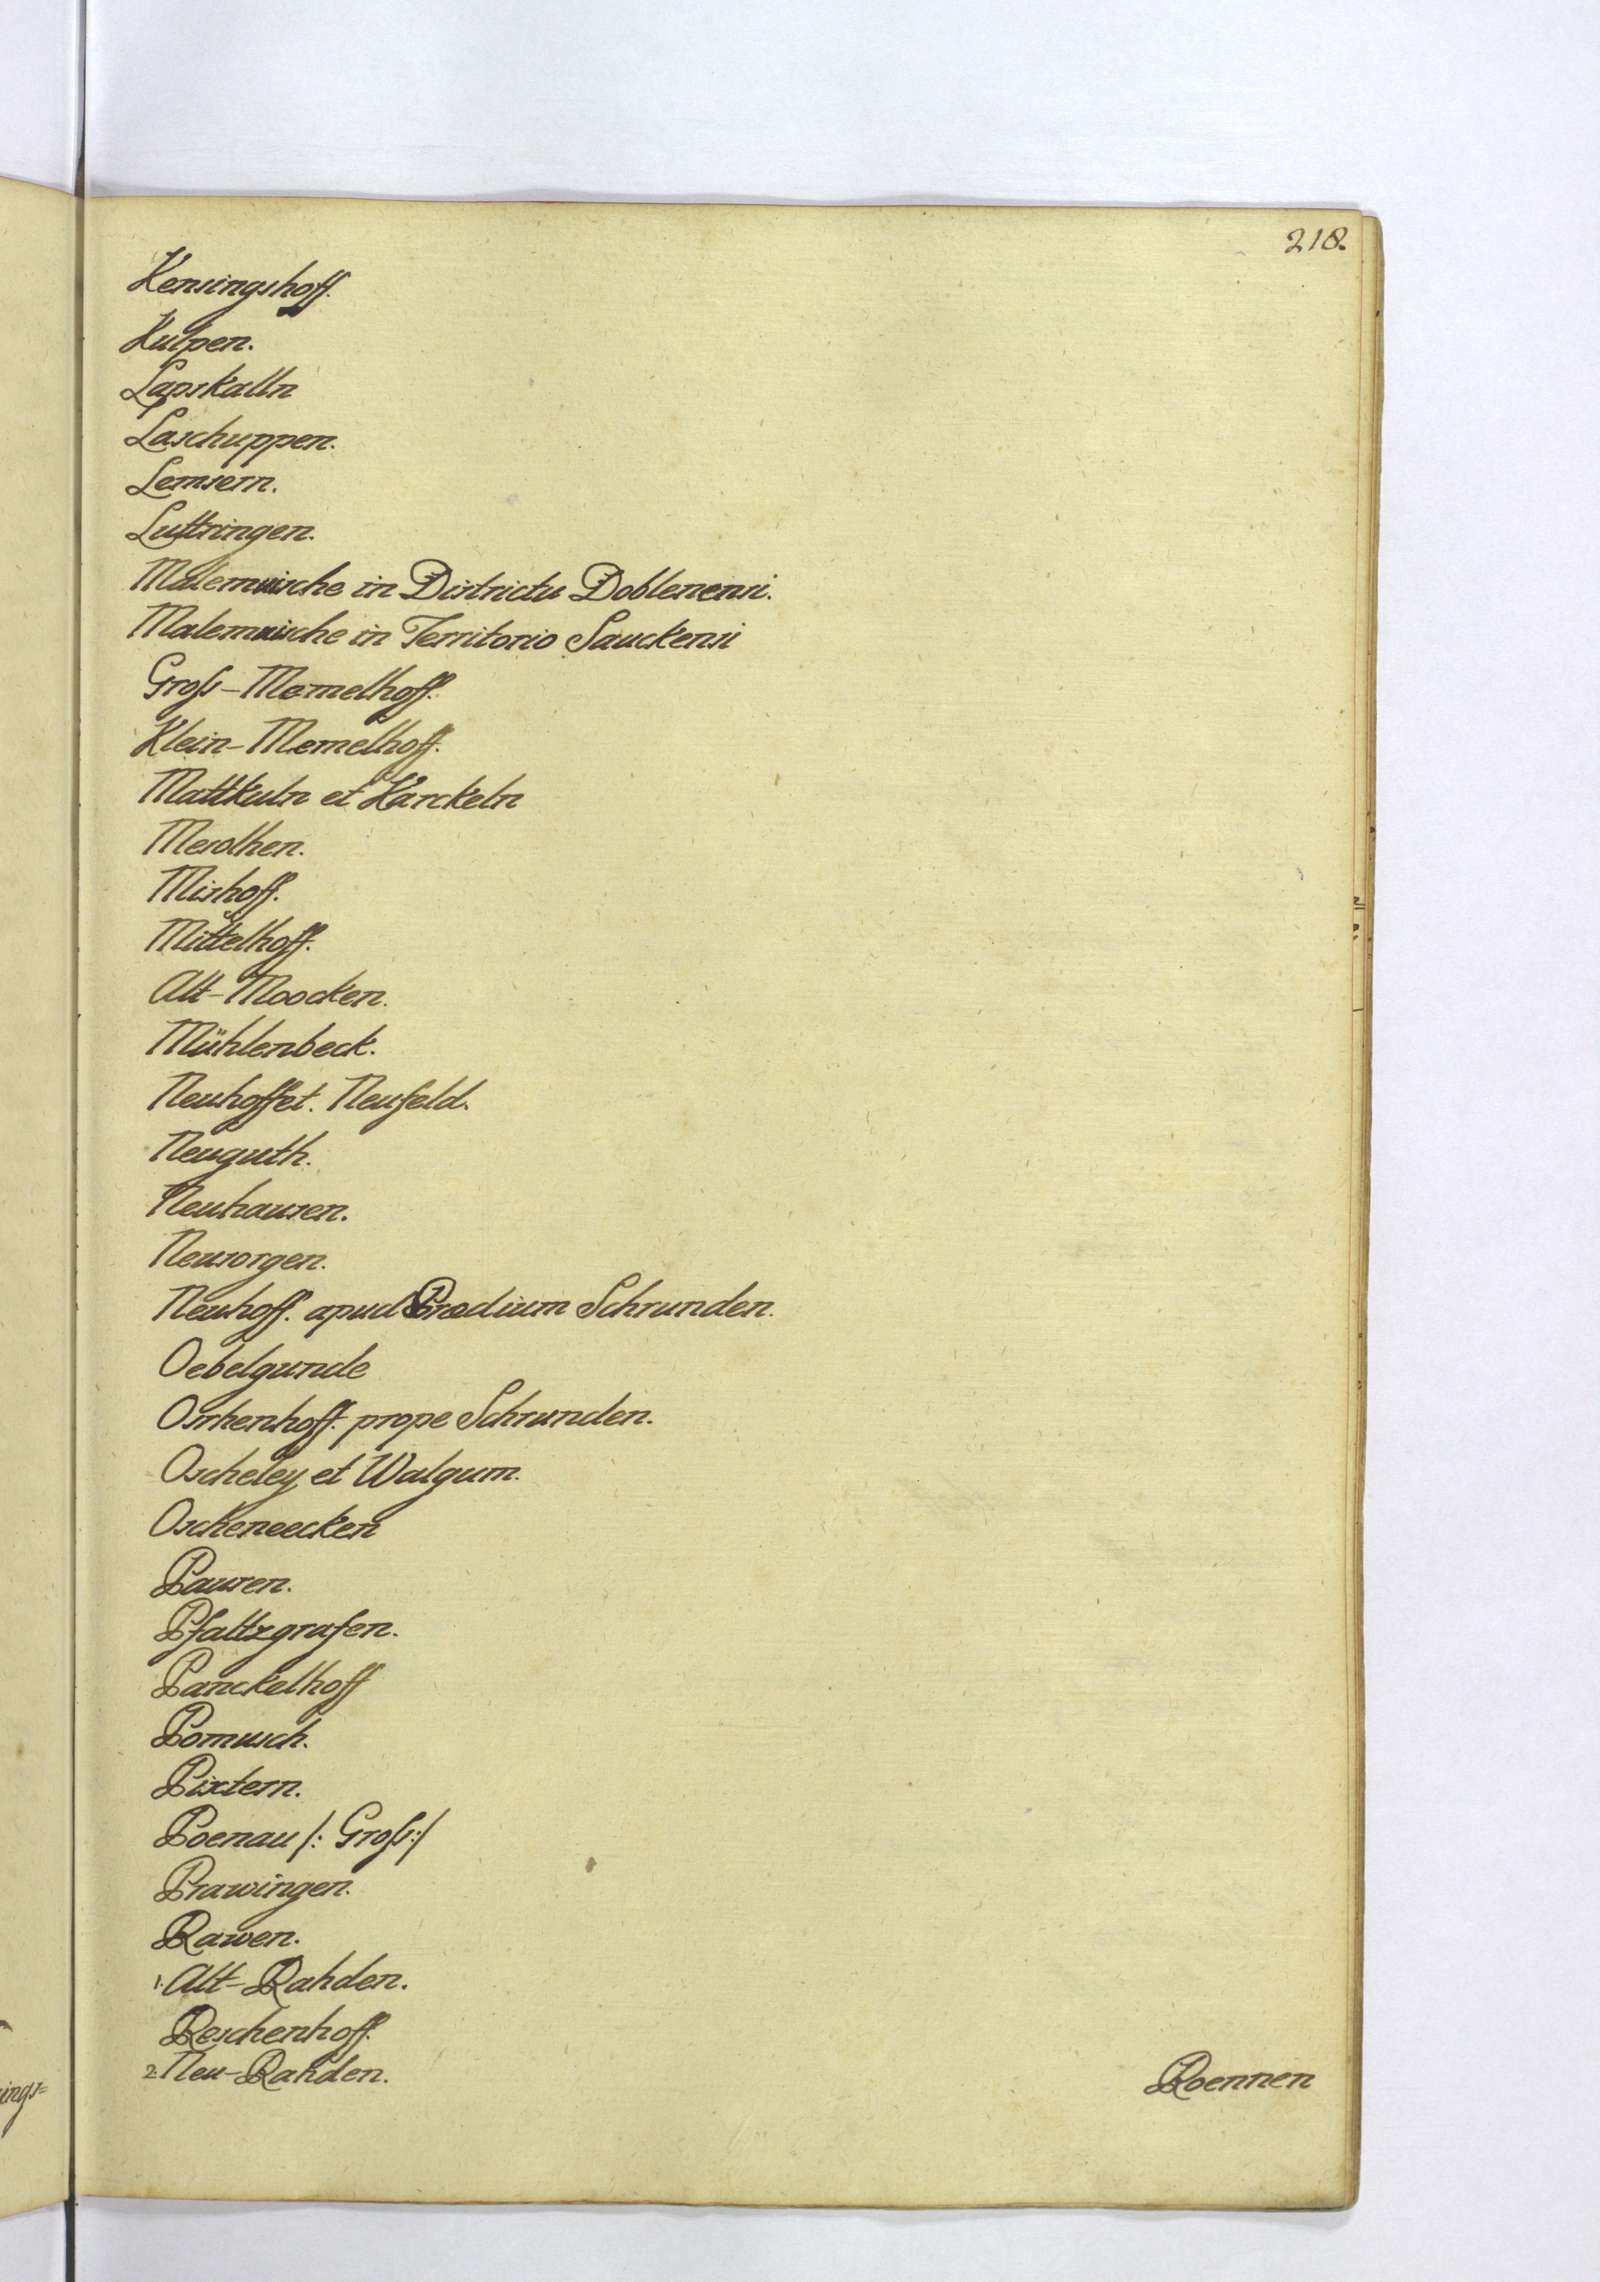 218.
Kensingshoff.
Kulpen.
Lapskalln
Laschuppen.
Lemsern.
Luttringen.
Malemuische in Districtu Doblenensi.
Malemuische in Territorio Sauckensi
Groſs-Memelhoff.
Klein-Memelhoff.
Mattkuln et Karckeln
Mesolhen.
Mishoff.
Mittelhoff.
Alt-Moocken.
Mühlenbeck.
Neuhoff et. Neufeld.
Neuguth.
Neuhausen.
Neusorgen.
Neuhoff. apud Prædium Schrunden.
Oebelgunde
Osrhenhoff. prope Schrunden.
Oscheley et Walgum.
Oscheneecken
Pausen.
Pfaltzgrafen.
Panckelhoff
Pomusch.
Pixtern.
Poenau /: Groſs:/
Prawingen.
Rawen.
1. Alt-Rahden.
Reschenhoff.
2. Neu-Rahden.
Roennen
ings=